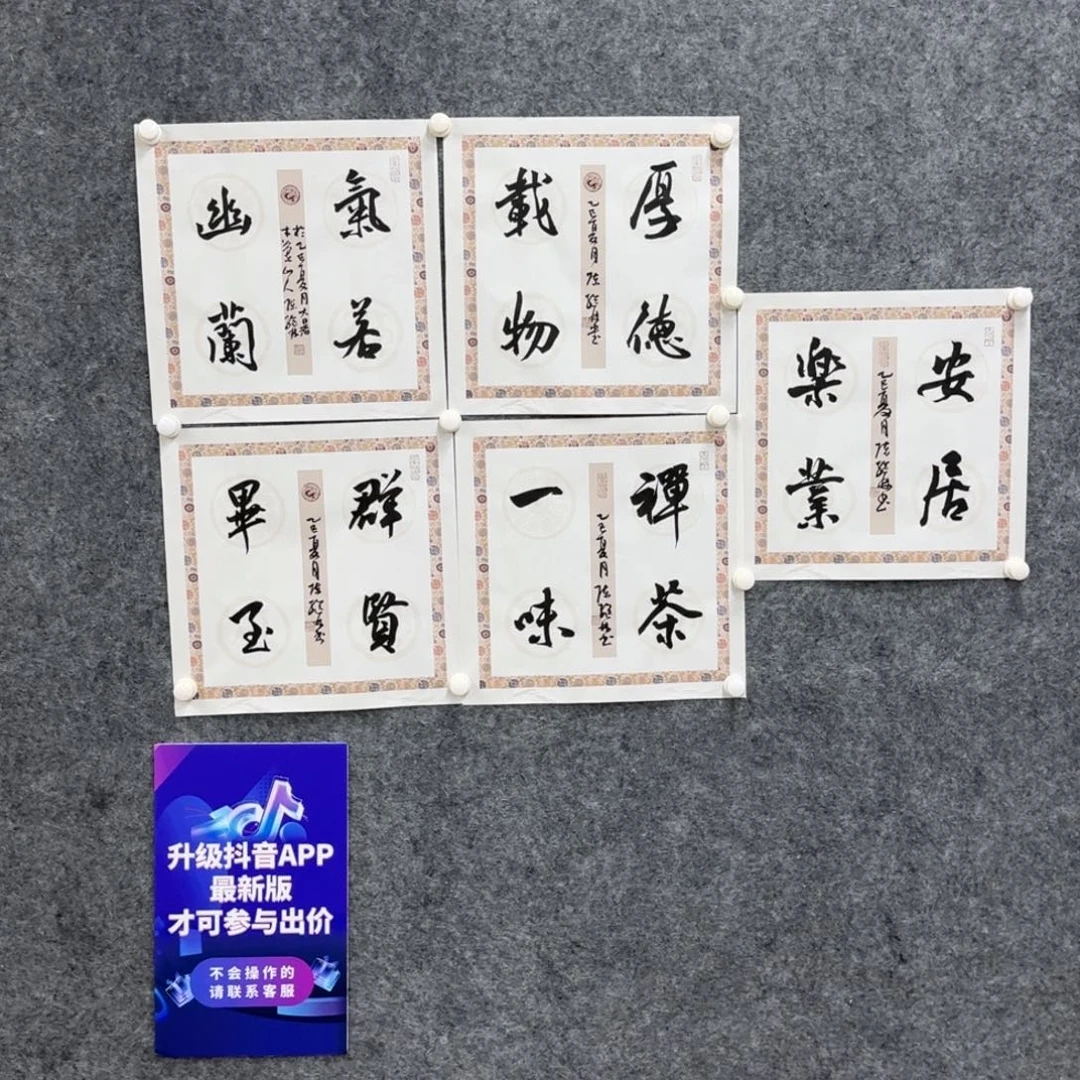 氣若
幽蘭
於乙巳年夏月大暑
厚德
載物
乙巳夏月
群賢
畢至
乙巳夏月
禪茶
一味
乙巳夏月
安居
樂業
乙巳夏月
升级抖音APP
最新版
才可参与出价
不会操作的
请联系客服